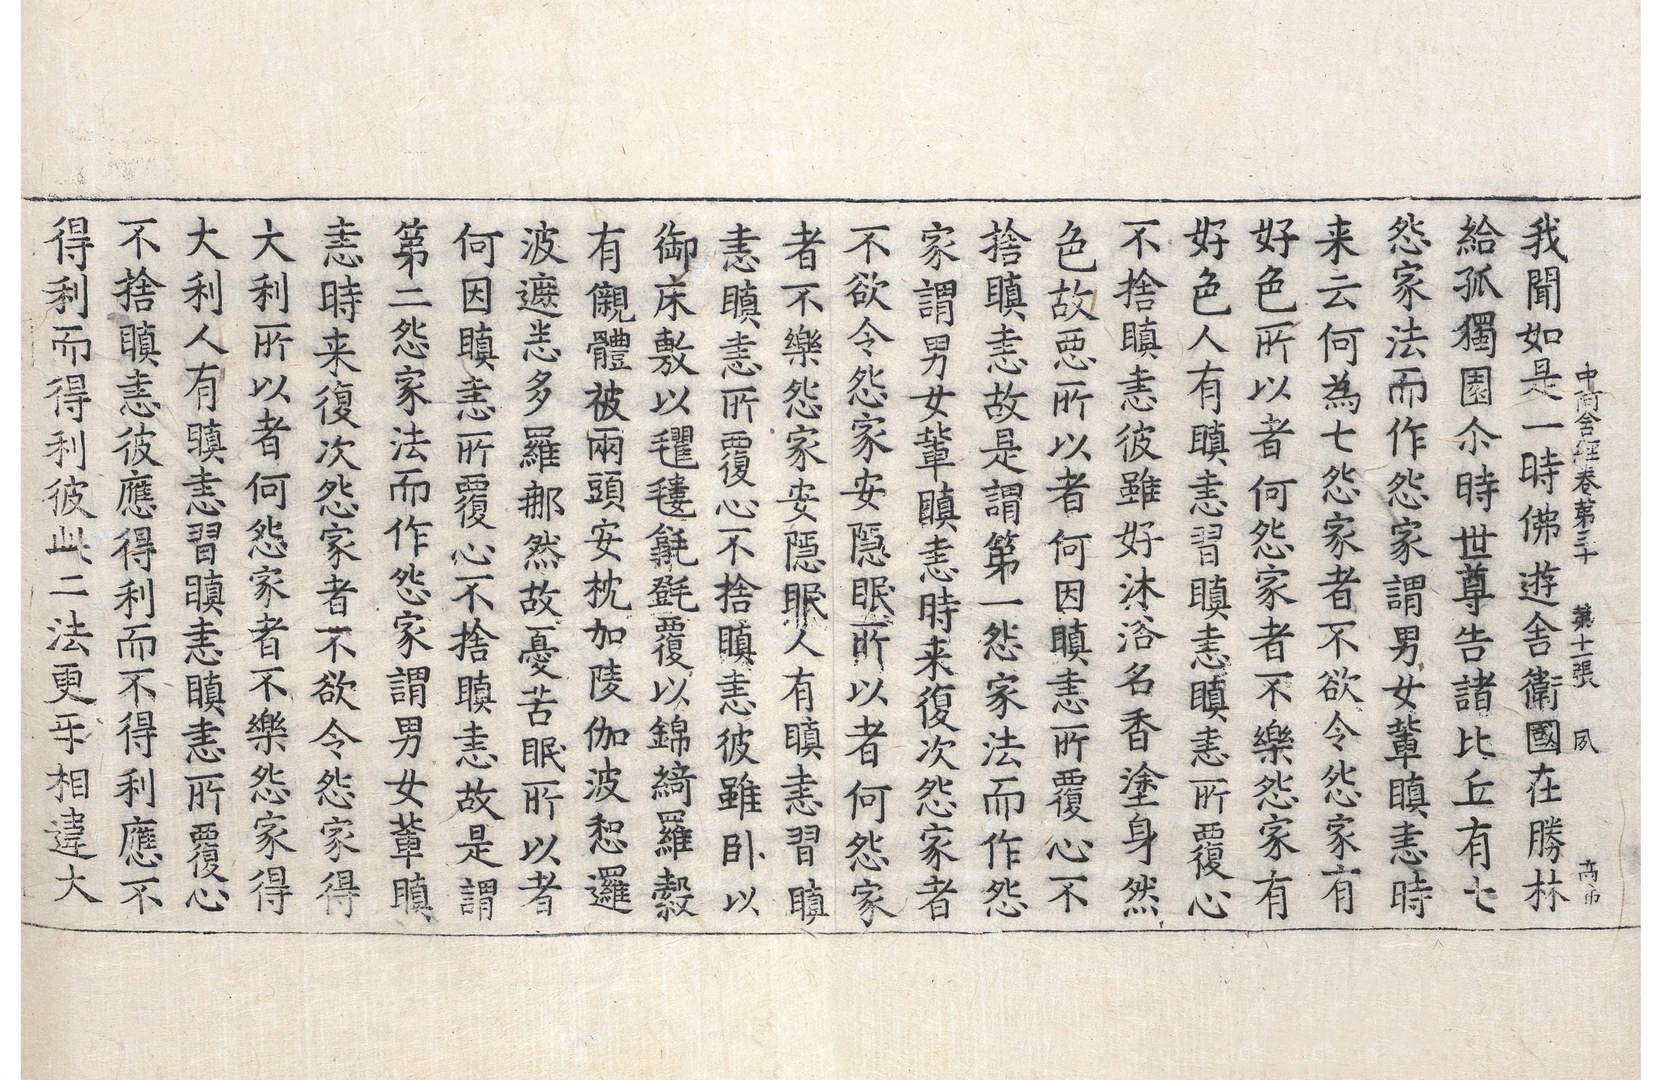 中阿含經卷第三十 第十二張 夙
我聞如是一時佛遊舍衛國在勝林
給孤獨園尒時世尊告諸比丘有七
怨家法而作怨家謂男女輩瞋恚時
来云何為七怨家者不欲令怨家有
好色所以者何怨家者不樂怨家有
好色人有瞋恚習瞋恚瞋恚所覆心
不捨瞋恚彼雖好沐浴名香塗身然
色故惡所以者何因瞋恚所覆心不
捨瞋恚故是謂第一怨家法而作怨
家謂男女輩瞋恚時来復次怨家者
不欲令怨家安隱眠所以者何怨家
者不樂怨家安隱眠人有瞋恚習瞋
恚瞋恚所覆心不捨瞋恚彼雖卧以
御床敷以氍氀毾㲪覆以錦綺羅縠
有儭體被兩頭安枕加陵伽波惒邏
波遮悉多羅那然故憂苦眠所以者
何因瞋恚所覆心不捨瞋恚故是謂
第二怨家法而作怨家謂男女輩瞋
恚時来復次怨家者不欲令怨家得
大利所以者何怨家者不樂怨家得
大利人有瞋恚習瞋恚瞋恚所覆心
不捨瞋恚彼應得利而不得利應不
得利而得利彼此二法更乎相違大